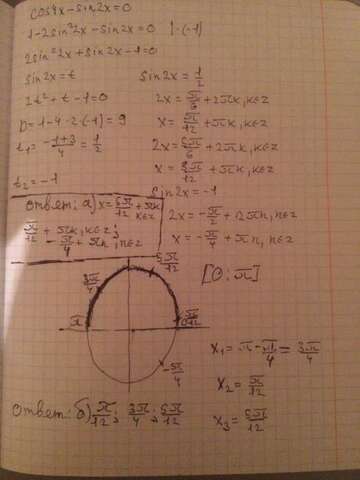 cos4x-sin2x=0
1-2sin²2x-sin2x=0 |·(-1)
2sin²2x+sin2x-1=0
sin2x=t
2t²+t-1=0
D=1-4·2·(-1)=9
t₁= -1+3/4 = 1/2
t₂=-1
sin2x=1/2
2x=π/6+2πk, k∈z
x=π/12+πk, k∈z
2x=5π/6+2πk, k∈z
x=5π/12+πk, k∈z
sin2x=-1
2x=-π/2+2πn, n∈z
x=-π/4+πn, n∈z
Ответ: а) x=5π/12+πk k∈z
π/12+πk, k∈z;
-π/4+πn, n∈z
[0;π]
5π/12
3π/4
π
0
π/12
-π/4
x₁=π-π/4=3π/4
x₂=π/12
x₃=5π/12
Ответ: б) π/12; 3π/4; 5π/12